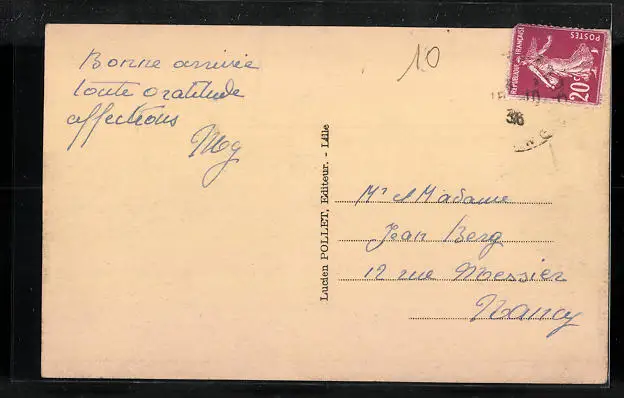 Bonne arrivée
toute gratitude
affections
Mg
10
REPUBLIQUE FRANÇAISE
POSTES
20c
36
Lucien POLLET, Editeur. - Lille
Mr et Madame
Jean Berg
12 rue Messier
Nancy